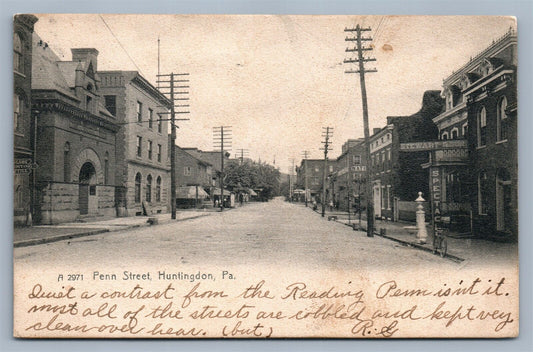 STEWART
SHEET
A 2971 Penn Street, Huntingdon, Pa.
Quit a contrast from the Reading Penn isn't it.
most all of the streets are cobbled and kept very
clean over hear. (but) R.G.